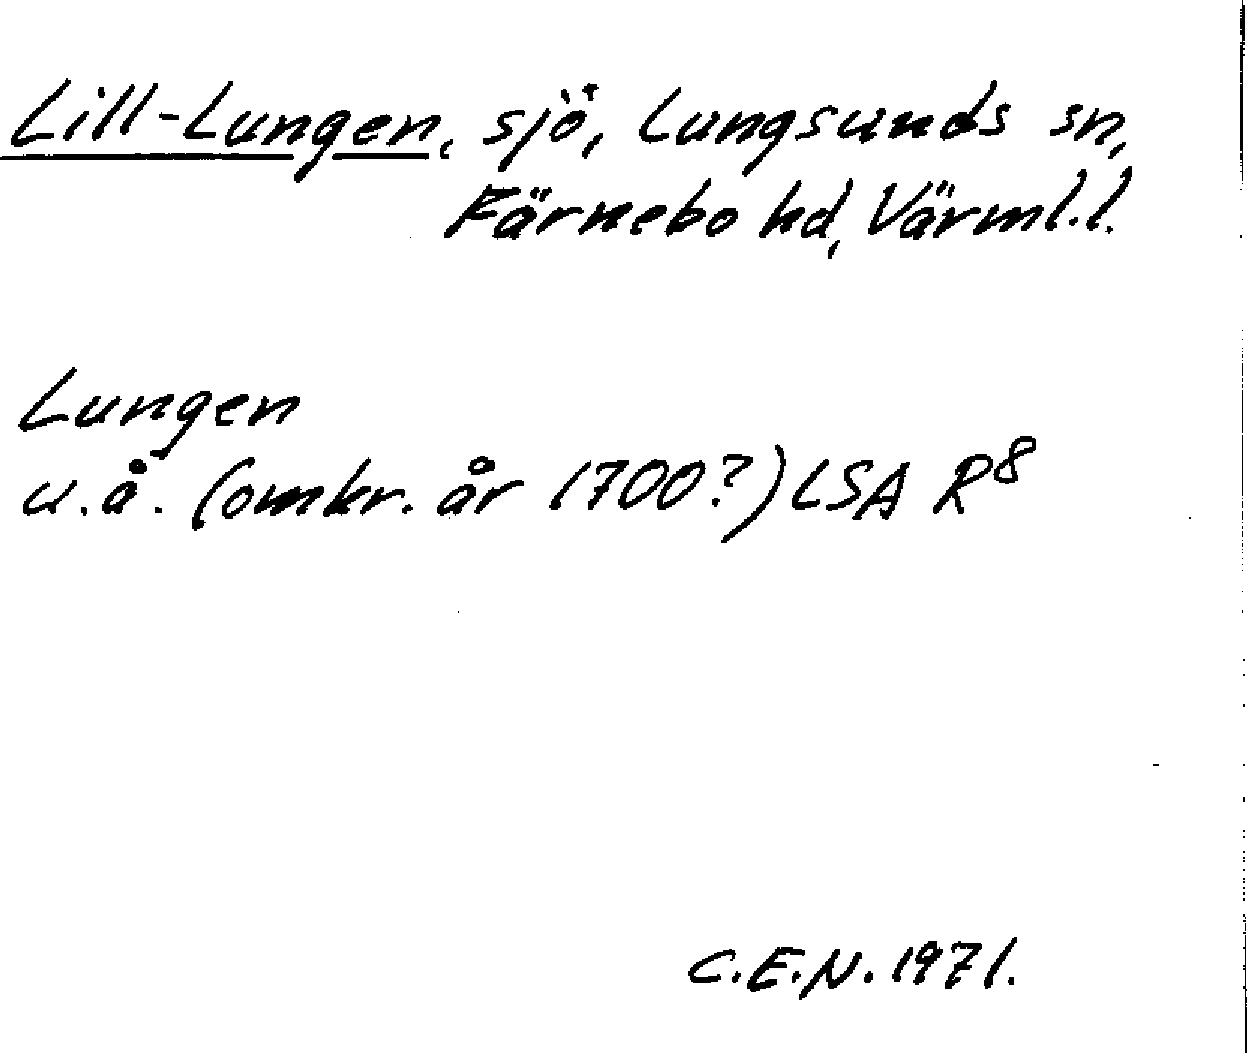 Lill-Lungen, sjö, Lungsunds sn,
Färnebo hd, Värml. l.
Lungen
u.å. (omkr. år 1700?) LSA R⁸
C.E.N. 1971.